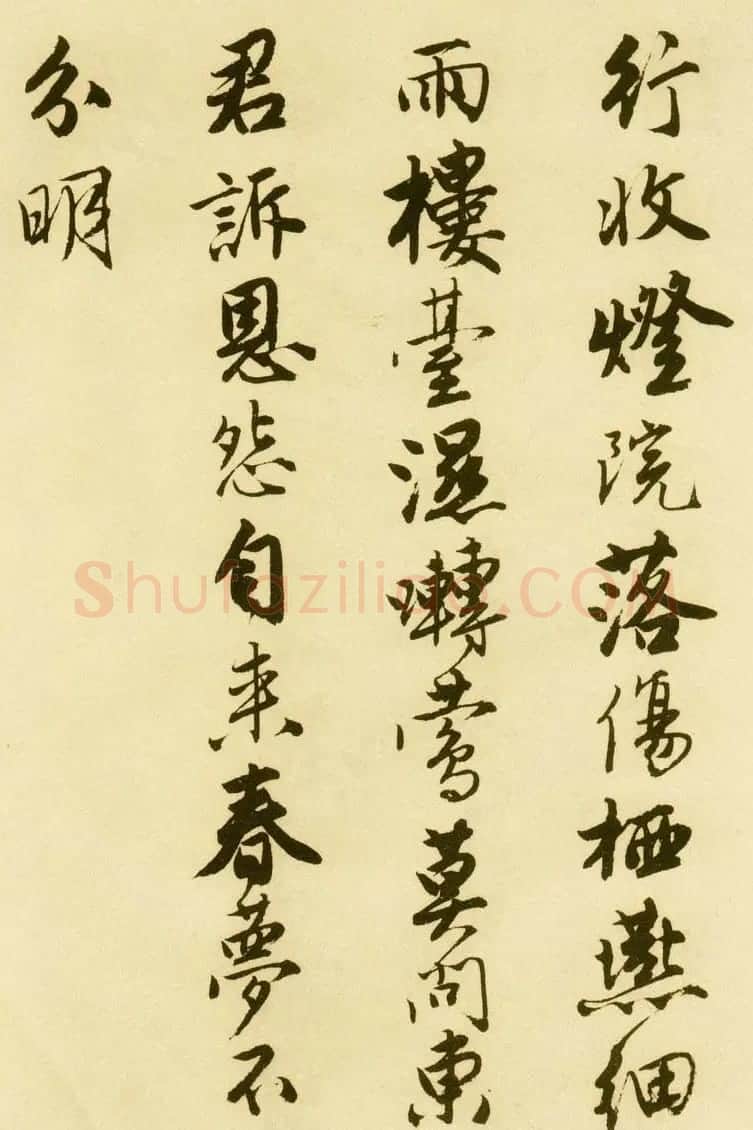 行收燈院落傷栖燕細
雨樓臺濕囀鶯莫問東
君訴恩怨自来春夢不
分明
Shufaziliao.COM